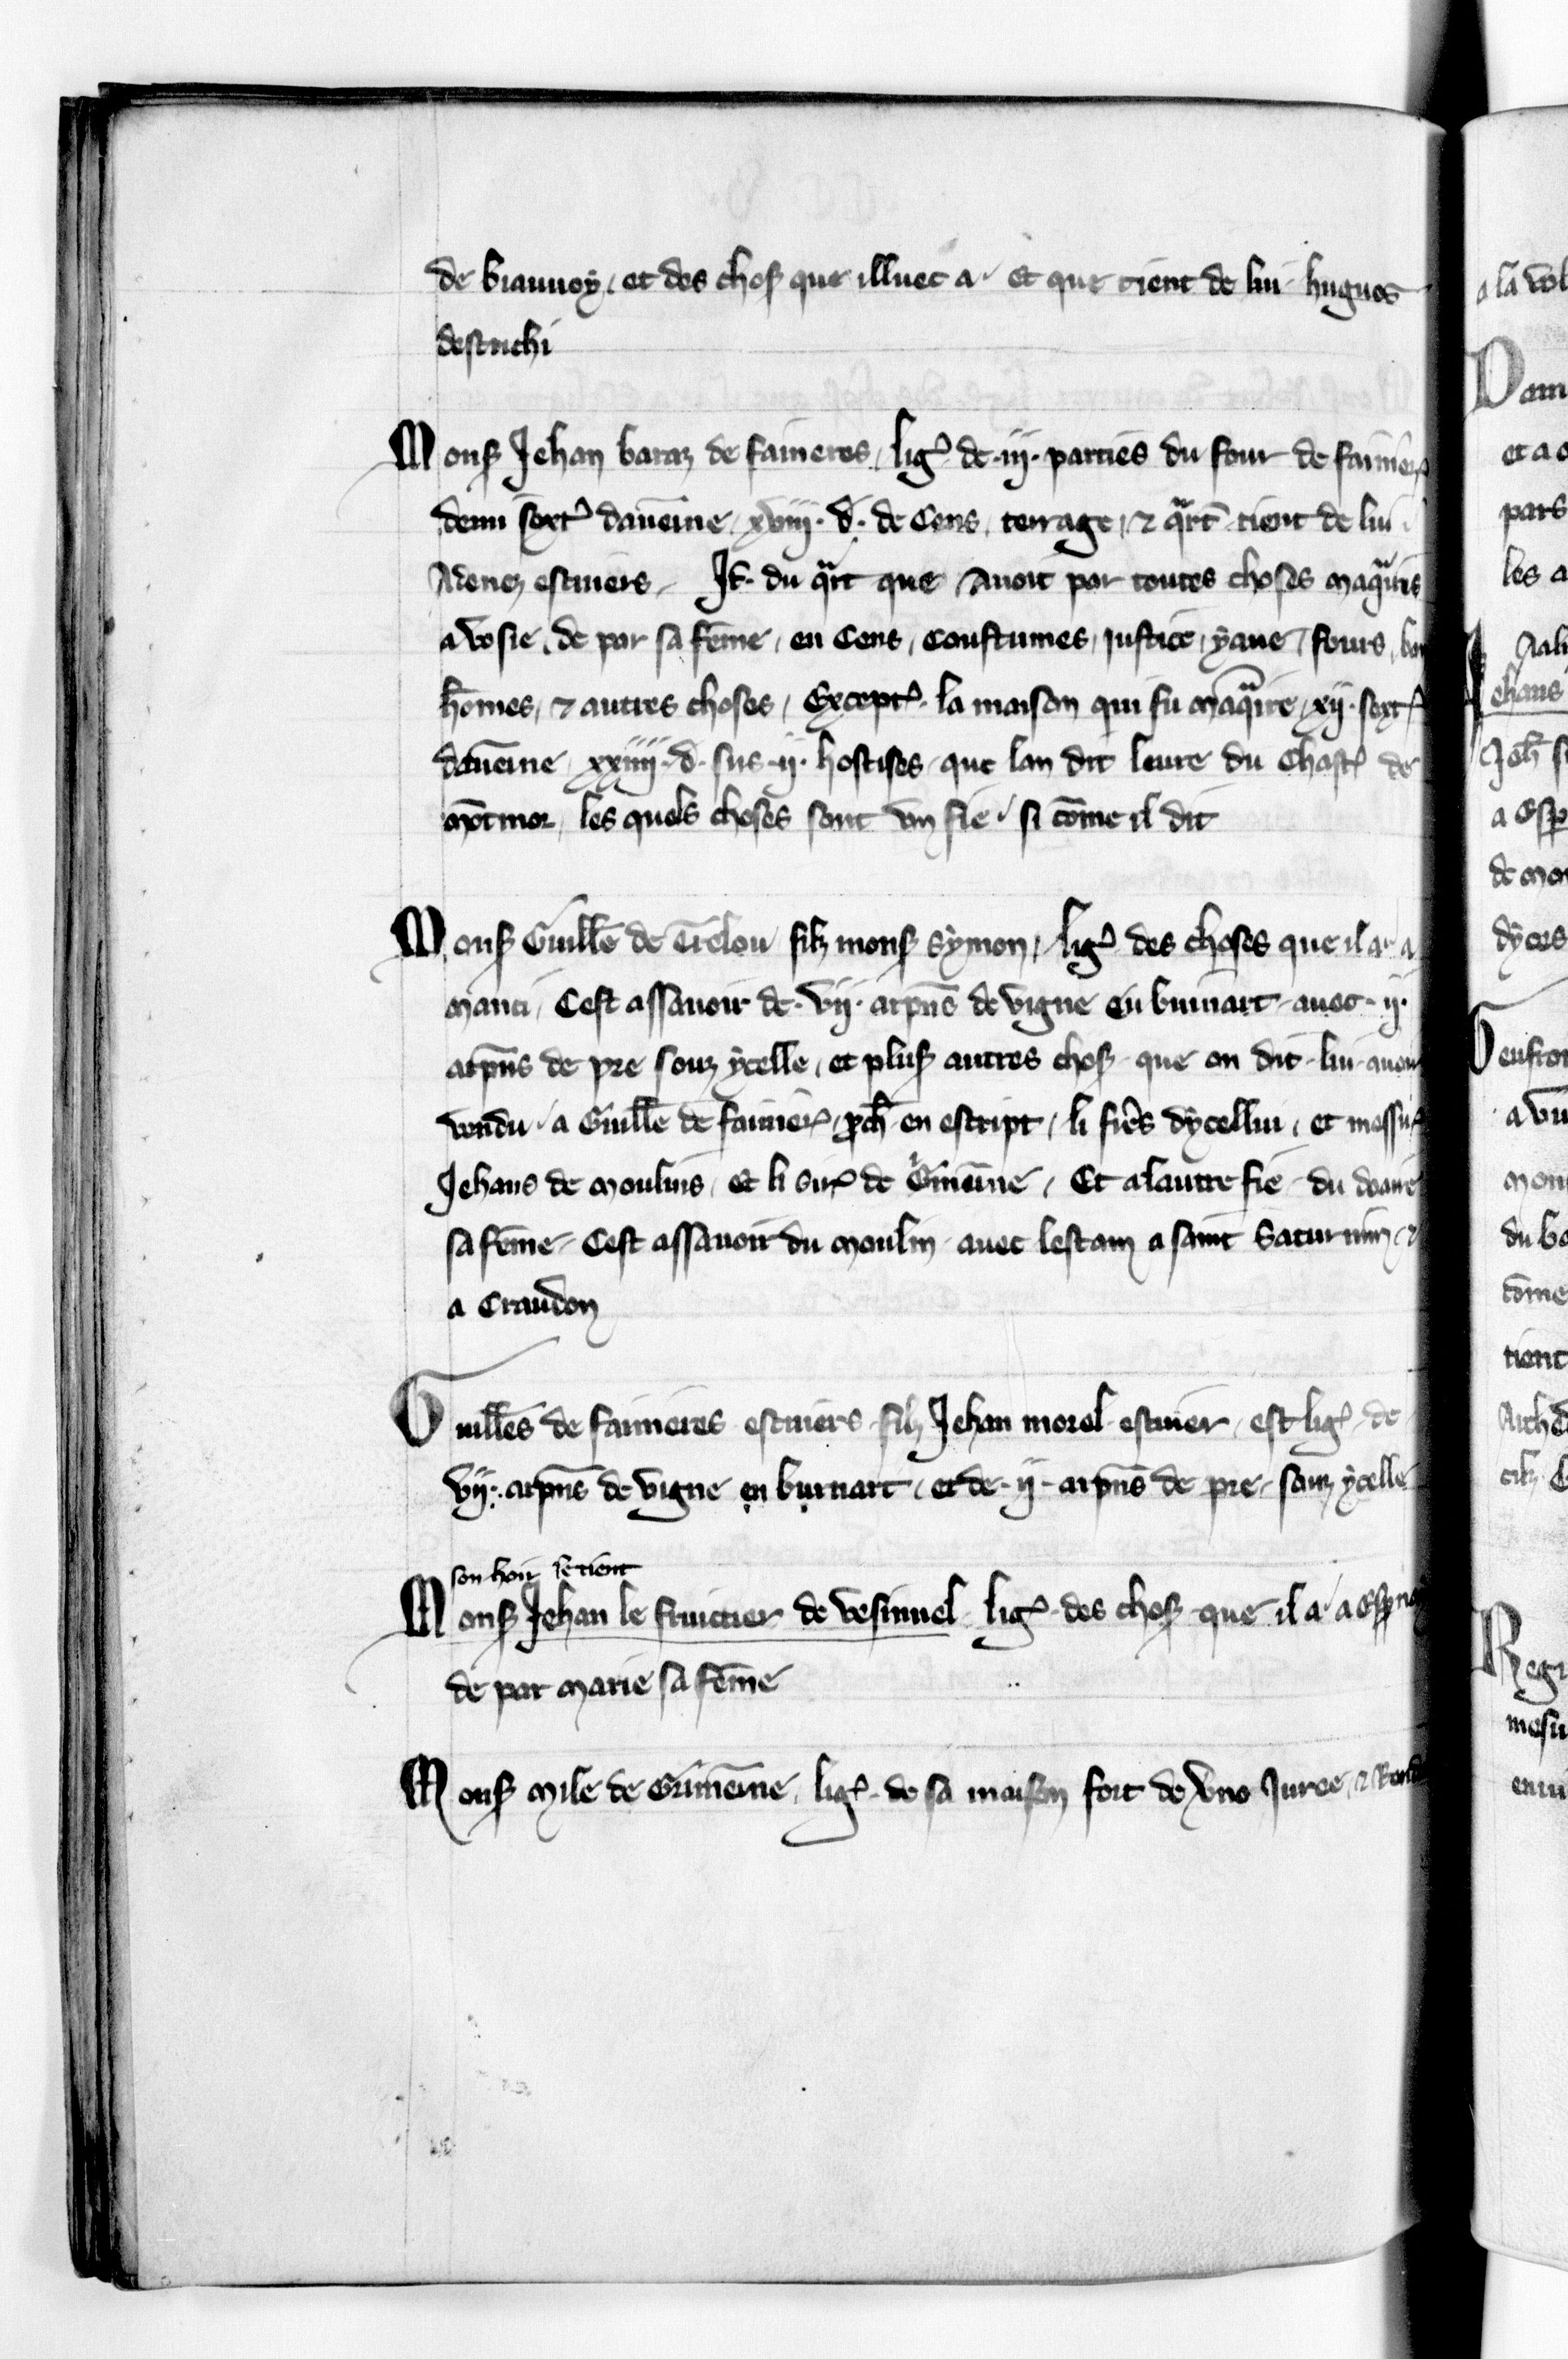 de biauuoy, et des chos que illuec a, Et que tient de lui hugues
destuchi
Mons Jehan baraz de faineres, lig de .iij. parties du four de
demi sext daueine, xviij. d. de Cens, terrage, & qart tient de lui
Adenez escuiers, It. du qart que Auoit por toutes choses maquars
a vosie, de par sa feme, en Cens, Coustumes, Justice, yaue, fours,
homes, & autres choses, Except la maison qui fu maquaire, xij. sext
daueine, xxiiij. d. sus .ij. hostises, que lan dit leure du Chast de
motmor, les quels choses sont vn fie, si come il dit
Mons Guille de Trelou filz mons Symon, lig des choses que il a a
manci, Cest assauoir de .vij. arpns de vigne en buinart, auec .ij.
arpns de pre souz ycelle, et plus autres chos que on dit lui
vendu, a Guille de fainer, en escript, li fres dycellui, et
Jehans de moulins, et li sir de Et alautre fie du
sa feme, Cest assauoir du moulin auec lestam a saint Saturnin, &
a Craudon
Guilles de faineres escuiers filz Jehan morel escuier, est lig de
vij. arpns de vigne en burnart, et de .ij. arpns de pre, souz ycelle
son hoir le tient
Mons Jehan le fruitier de vesinuel lig des chos que il a
de par marie sa feme
Mons mile de Grineine, lig de sa maison fort de vno Juree, &
a la
Dam
et a
pars
les a
Aali
Jehans
Jeh
a
de mon
dyces
a vn
mon
du bo
come
tient
Regn
mesu